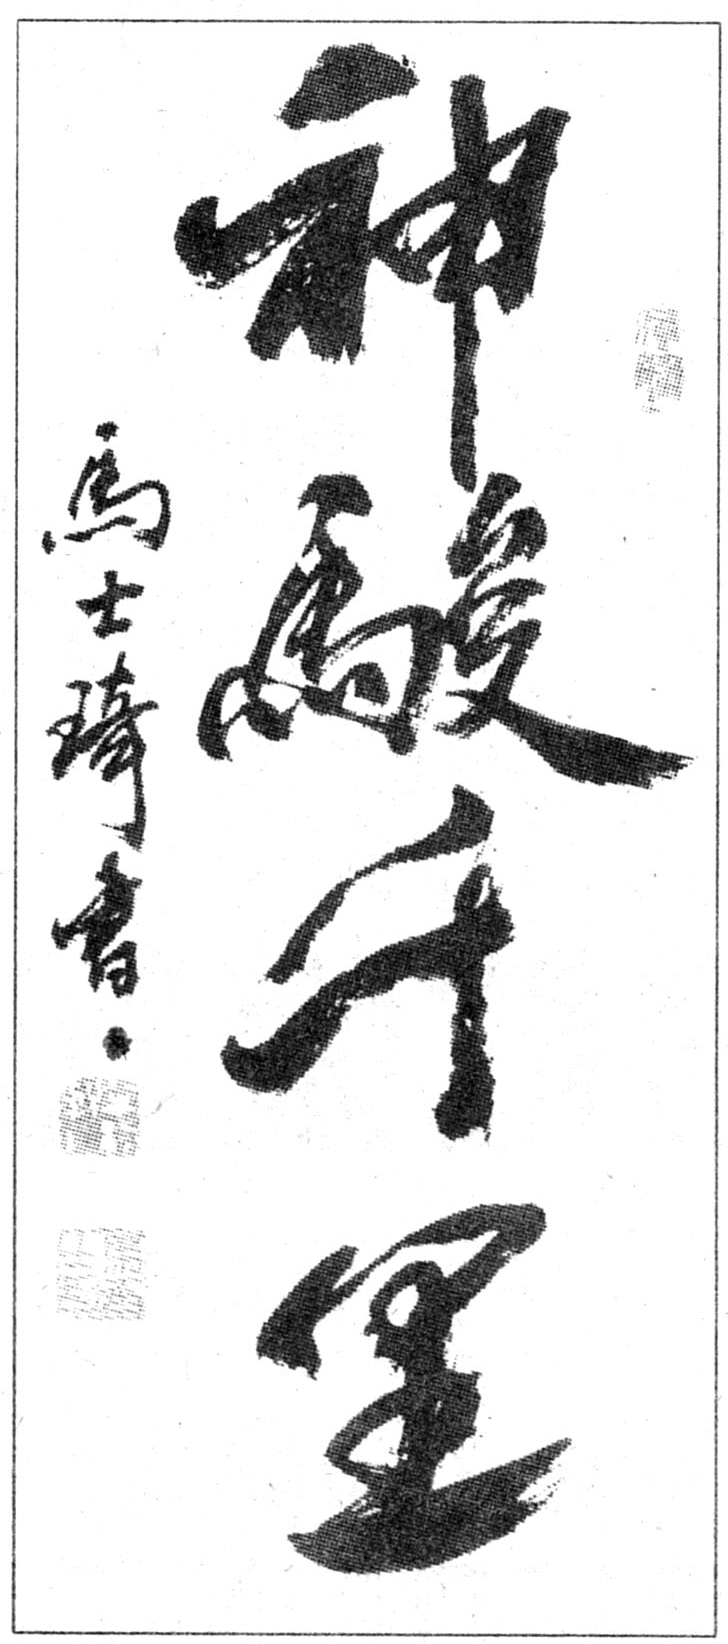 神駿千里
馬士琦書